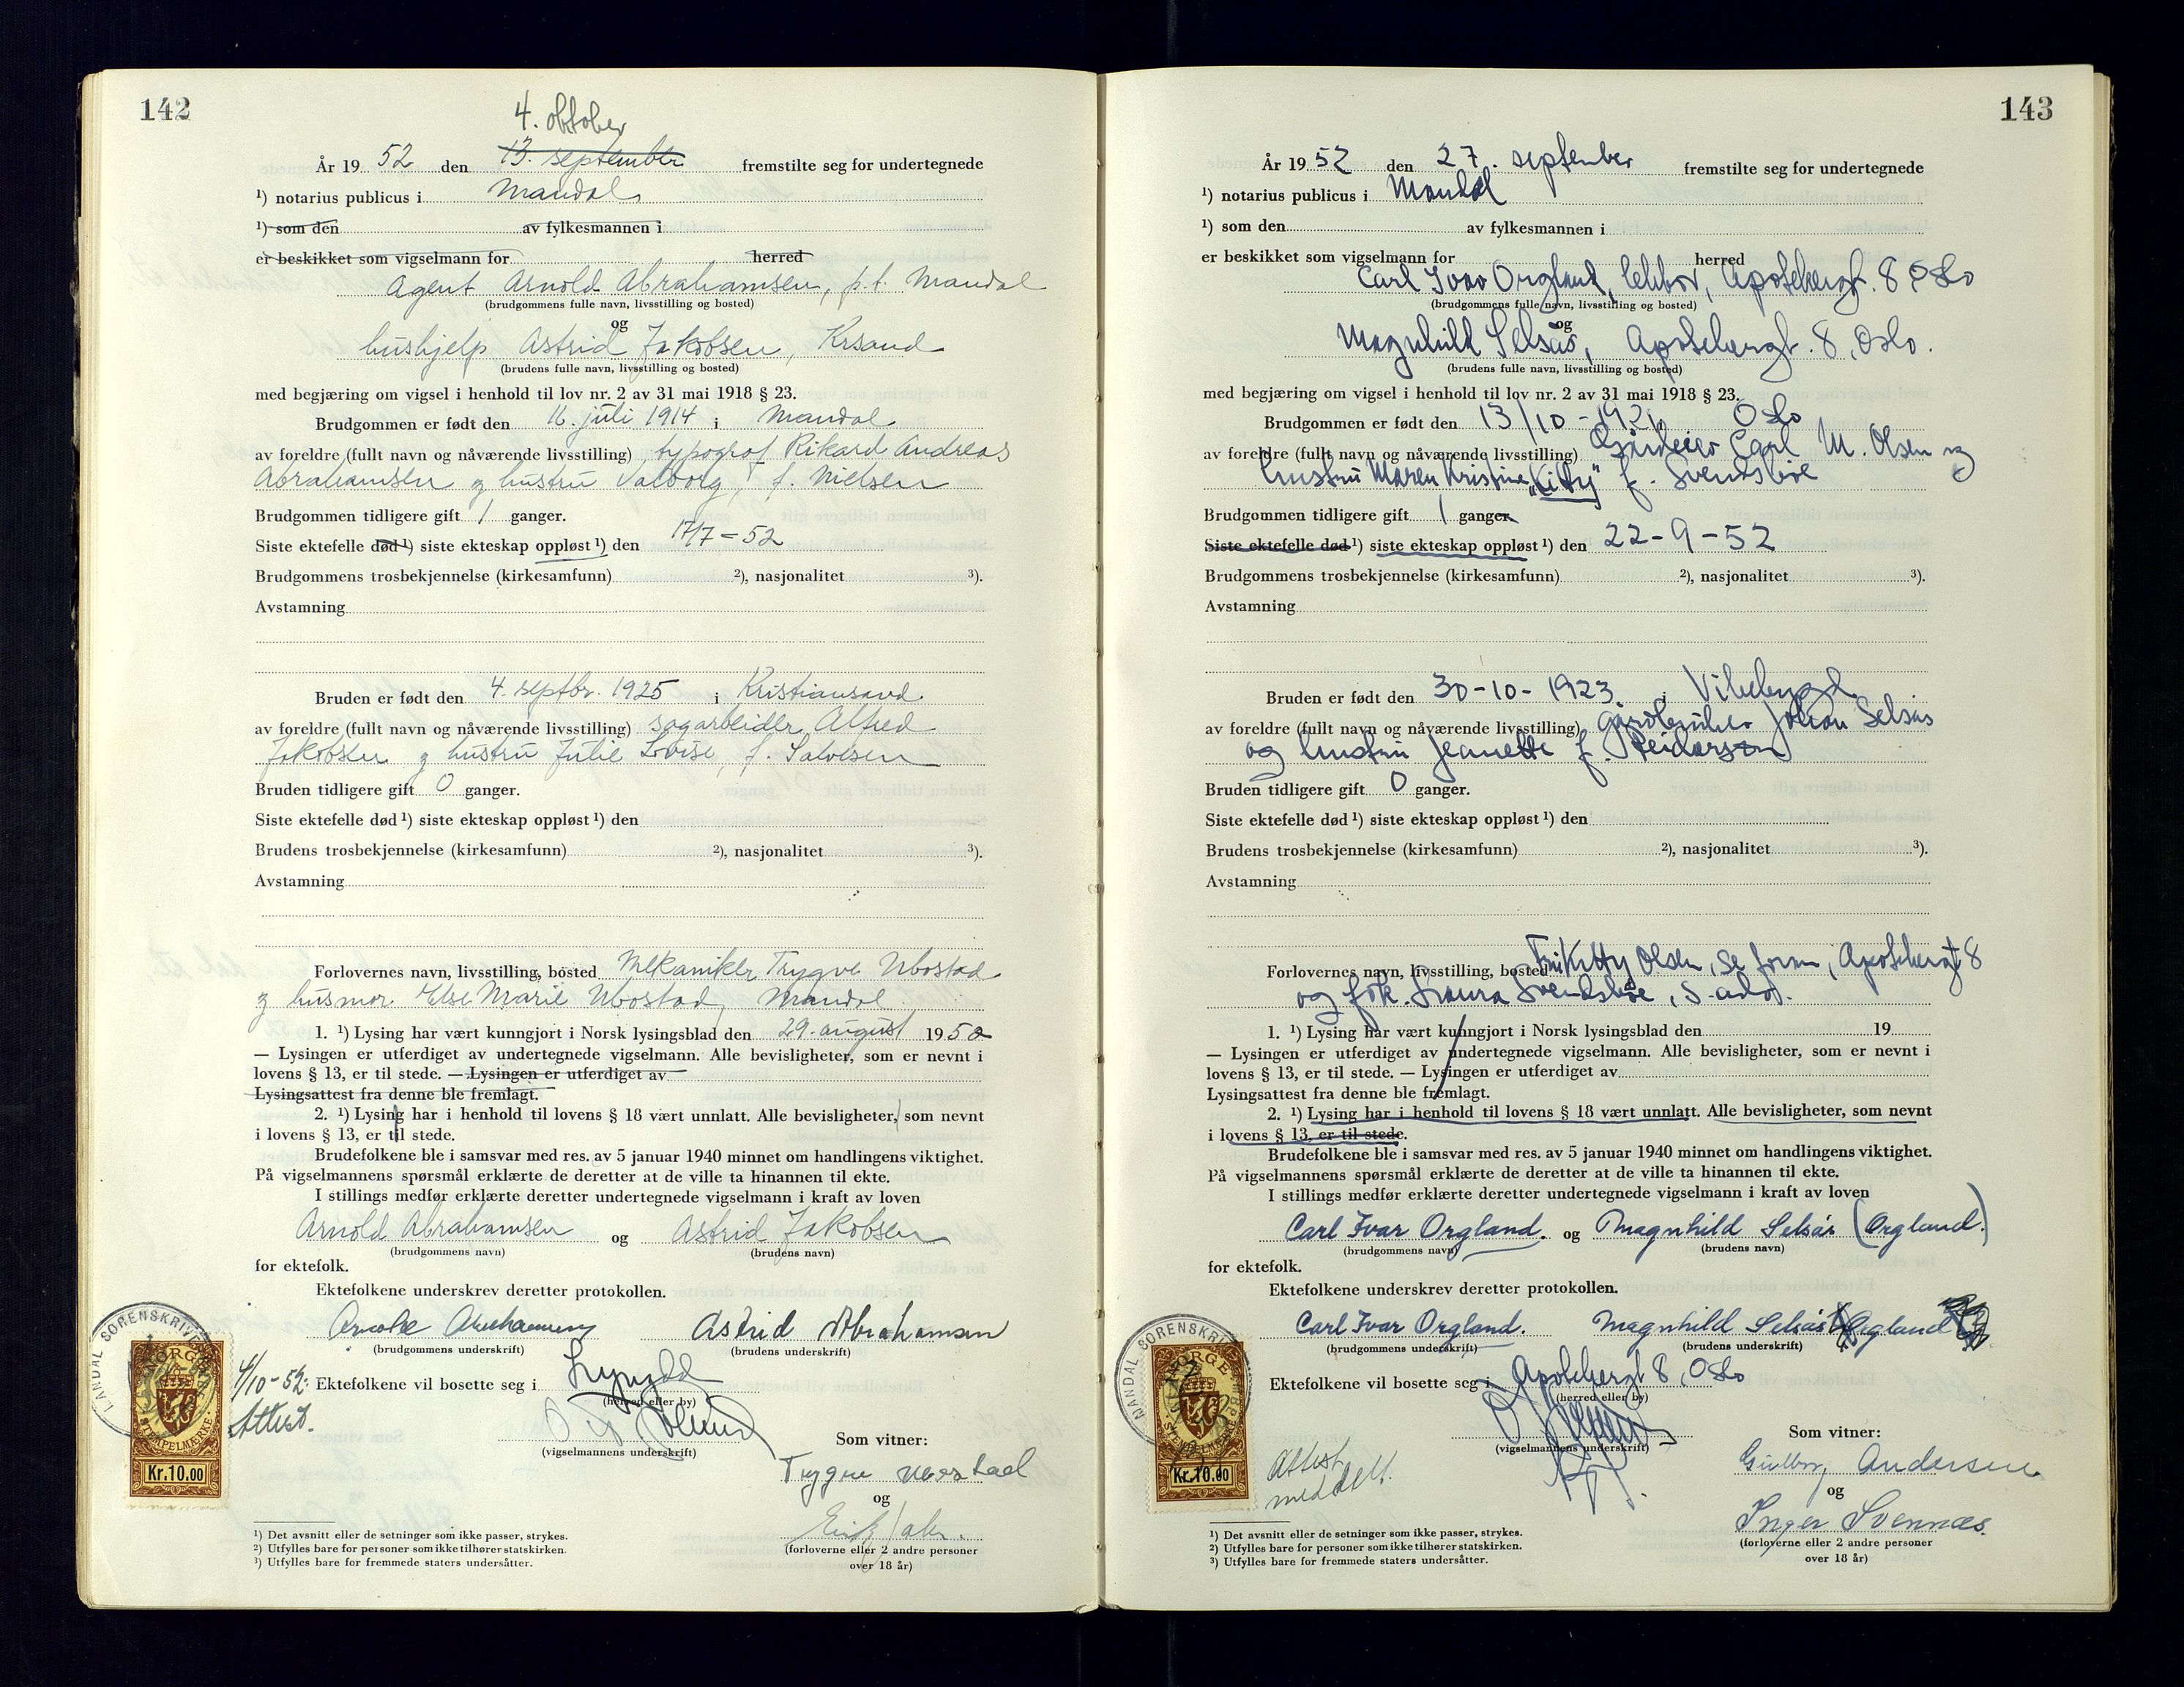 142
4. oktober
År 19 52 den 13. september fremstilte seg for undertegnede
¹) notarius publicus i Mandal
¹) som den av fylkesmannen i
er beskikket som vigselmann for herred
Agent Arnold Abrahamsen, p.t. Mandal
(brudgommens fulle navn, livsstilling og bosted)
og
hushjelp Astrid Jakobsen, Krsand
(brudens fulle navn, livsstilling og bosted)
med begjæring om vigsel i henhold til lov nr. 2 av 31 mai 1918 § 23.
Brudgommen er født den 16. juli 1914 i Mandal
av foreldre (fullt navn og nåværende livsstilling) typograf Rikard Andreas
Abrahamsen og hustru Valborg, f. Nielsen
Brudgommen tidligere gift 1 ganger.
Siste ektefelle død ¹) siste ekteskap oppløst ¹) den 17/7 - 52
Brudgommens trosbekjennelse (kirkesamfunn) ²), nasjonalitet ³).
Avstamning
Bruden er født den 4. septbr. 1925 i Kristiansand.
av foreldre (fullt navn og nåværende livsstilling) sagarbeider Alfred
Jakobsen og hustru Julie Lovise, f. Salvesen
Bruden tidligere gift 0 ganger.
Siste ektefelle død ¹) siste ekteskap oppløst ¹) den
Brudens trosbekjennelse (kirkesamfunn) ²), nasjonalitet ³).
Avstamning
Forlovernes navn, livsstilling, bosted Mekaniker Trygve Ubostad
og husmor Else Marie Ubostad, Mandal
1. ¹) Lysing har vært kunngjort i Norsk lysingsblad den 29. august 1952
— Lysingen er utferdiget av undertegnede vigselmann. Alle bevisligheter, som er nevnt i
lovens § 13, er til stede. — Lysingen er utferdiget av
Lysingsattest fra denne ble fremlagt.
2. ¹) Lysing har i henhold til lovens § 18 vært unnlatt. Alle bevisligheter, som nevnt
i lovens § 13, er til stede.
Brudefolkene ble i samsvar med res. av 5 januar 1940 minnet om handlingens viktighet.
På vigselmannens spørsmål erklærte de deretter at de ville ta hinannen til ekte.
I stillings medfør erklærte deretter undertegnede vigselmann i kraft av loven
Arnold Abrahamsen og Astrid Jakobsen
(brudgommens navn) (brudens navn)
for ektefolk.
Ektefolkene underskrev deretter protokollen.
Arnold Abrahamsen Astrid Abrahamsen
(brudgommens underskrift) (brudens underskrift)
4/10-52: Ektefolkene vil bosette seg i Lyngdal
Attest. (herred eller by)
(vigselmannens underskrift)
Som vitner:
Trygve Ubostad
og
(forloverne eller 2 andre personer
over 18 år)
MANDAL SORENSKRIVER
NORGE
STEMPELMERKE
Kr.10.00
¹) Det avsnitt eller de setninger som ikke passer, strykes.
²) Utfylles bare for personer som ikke tilhører statskirken.
³) Utfylles bare for fremmede staters undersåtter.
143
År 19 52 den 27. september fremstilte seg for undertegnede
¹) notarius publicus i Mandal
¹) som den av fylkesmannen i
er beskikket som vigselmann for herred
Carl Ivar Orgland, lektor, Apotekergt. 8 Oslo
(brudgommens fulle navn, livsstilling og bosted)
og
Magnhild Selsås, Apotekergt. 8, Oslo.
(brudens fulle navn, livsstilling og bosted)
med begjæring om vigsel i henhold til lov nr. 2 av 31 mai 1918 § 23.
Brudgommen er født den 13/10-1921 Oslo
av foreldre (fullt navn og nåværende livsstilling) Gårdeier Carl M. Olsen og
hustru Maren Kristine "Kitty" f. Svendsbøe
Brudgommen tidligere gift 1 ganger
Siste ektefelle død ¹) siste ekteskap oppløst ¹) den 22-9-52
Brudgommens trosbekjennelse (kirkesamfunn) ²), nasjonalitet ³).
Avstamning
Bruden er født den 30-10-1923. i Vikebygd
av foreldre (fullt navn og nåværende livsstilling) gårdbruker Johan Selsås
og hustru Jeanette f. Reidarson
Bruden tidligere gift 0 ganger.
Siste ektefelle død ¹) siste ekteskap oppløst ¹) den
Brudens trosbekjennelse (kirkesamfunn) ²), nasjonalitet ³).
Avstamning
Forlovernes navn, livsstilling, bosted Fru Kitty Olsen, se foran, Apotekergt 8
og frk. Laura Svendsbøe, s. adr.
1. ¹) Lysing har vært kunngjort i Norsk lysingsblad den 19
— Lysingen er utferdiget av undertegnede vigselmann. Alle bevisligheter, som er nevnt i
lovens § 13, er til stede. — Lysingen er utferdiget av
Lysingsattest fra denne ble fremlagt.
2. ¹) Lysing har i henhold til lovens § 18 vært unnlatt. Alle bevisligheter, som nevnt
i lovens § 13, er til stede.
Brudefolkene ble i samsvar med res. av 5 januar 1940 minnet om handlingens viktighet.
På vigselmannens spørsmål erklærte de deretter at de ville ta hinannen til ekte.
I stillings medfør erklærte deretter undertegnede vigselmann i kraft av loven
Carl Ivar Orgland. og Magnhild Selsås (Orgland.)
(brudgommens navn) (brudens navn)
for ektefolk.
Ektefolkene underskrev deretter protokollen.
Carl Ivar Orgland. Magnhild Selsås Orgland
(brudgommens underskrift) (brudens underskrift)
Ektefolkene vil bosette seg i Apotekergt 8, Oslo
(herred eller by)
(vigselmannens underskrift)
Attest
meddelt.
Som vitner:
Gudborg Andersen
og
Inger Svennæs.
(forloverne eller 2 andre personer
over 18 år)
MANDAL SORENSKRIVER
NORGE
STEMPELMERKE
Kr.10.00
¹) Det avsnitt eller de setninger som ikke passer, strykes.
²) Utfylles bare for personer som ikke tilhører statskirken.
³) Utfylles bare for fremmede staters undersåtter.